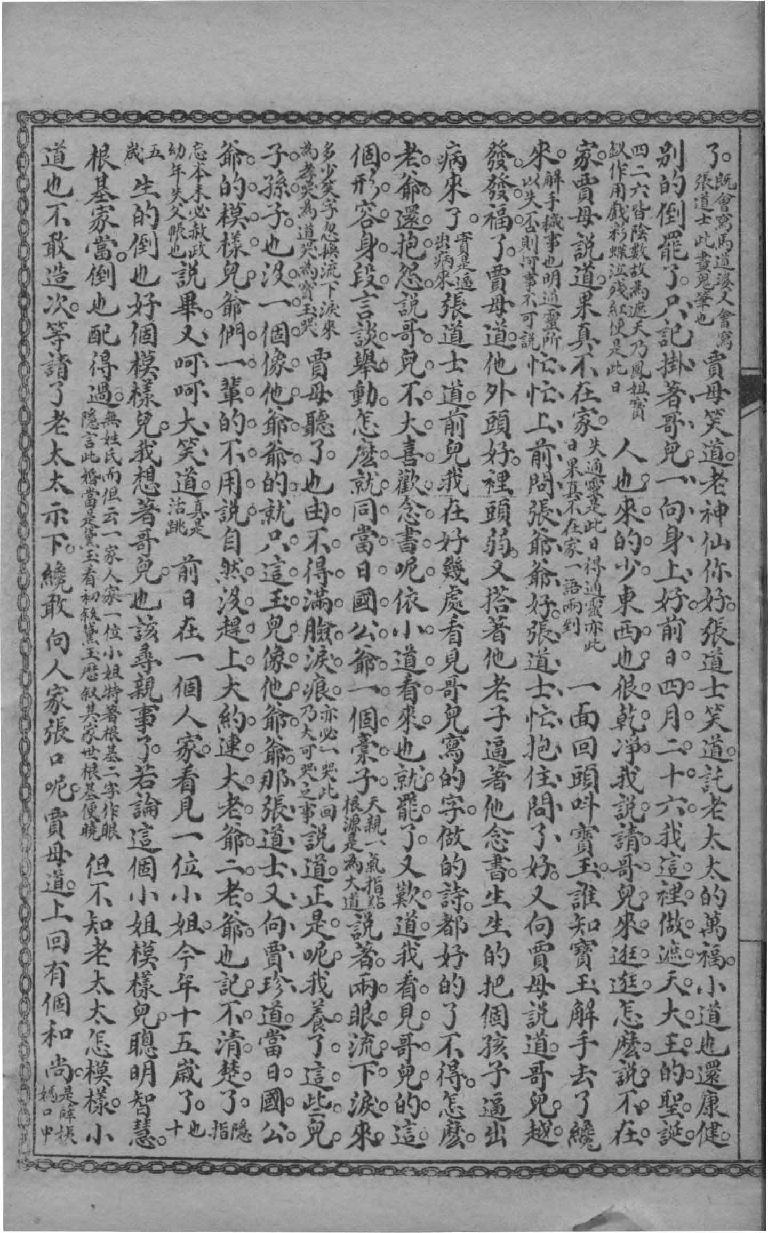 了。既會寫馬道婆又會寫張道士此畫鬼筆也賈母笑道。老神仙你好。張道士笑道。託老太太的萬福。小道也還康健。
別的倒罷了。只記掛著哥兒一向身上好。前日四月二十六。我這裡做遮天大王的聖誕
四二六皆陰數故為遮天乃鳳姐寶釵作用戲彩蝶泣殘紅便是此日人也來的少。東西也很乾凈。我說請哥兒來逛逛。怎麼說不在
家。賈母說道。果真不在家。失通靈是此日得通靈亦此日果真不在家一語兩到一面回頭叫寶玉。誰知寶玉解手去了纔
來。解手穢事也明通靈所以失否則何事不可說忙忙上前問張爺爺好。張道士忙抱住問了好。又向賈母說道。哥兒越
發發福了。賈母道。他外頭好。裡頭弱。又搭著他老子逼著他念書。生生的把個孩子逼出
病來了。實是逼出病來張道士道。前兒我在好幾處看見哥兒寫的字。做的詩。都好的了不得。怎麼
老爺還抱怨說哥兒不大喜歡念書呢。依小道看來也就罷了。又歎道。我看見哥兒的這
個形容身段言談舉動。怎麼就同當日國公爺一個稾子。天親一氣指點根源是為大道說著兩眼流下淚來。
多少笑字忽換流下淚來為孝哭為道哭為寶玉哭賈母聽了。也由不得滿臉淚痕。亦必一哭此回乃大可哭之事說道。正是呢。我養了這些兒
子孫子。也沒一個像他爺爺的。就只這玉兒像他爺爺。那張道士又向賈珍道。當日國公
爺的模樣兒。爺們一輩的不用說自然沒趕上。大約連大老爺二老爺也記不清楚了。隱指
忘本未必赦政幼年失父眼也說畢又呵呵大笑道。真是活跳前日在一個人家看見一位小姐。今年十五歲了。也十
五歲生的倒也好個模樣兒。我想著哥兒也該尋親事了。若論這個小姐模樣兒。聰明智慧。
根基家當。倒也配得過。無姓氏而但云一家人家一位小姐特著根基二字作眼隱言此婚當是黛玉看初敍黛玉歷敍其家世根基便曉但不知老太太怎模樣。小
道也不敢造次。等請了老太太示下。纔敢向人家張口呢。賈母道。上回有個和尚。是賺張媽口中